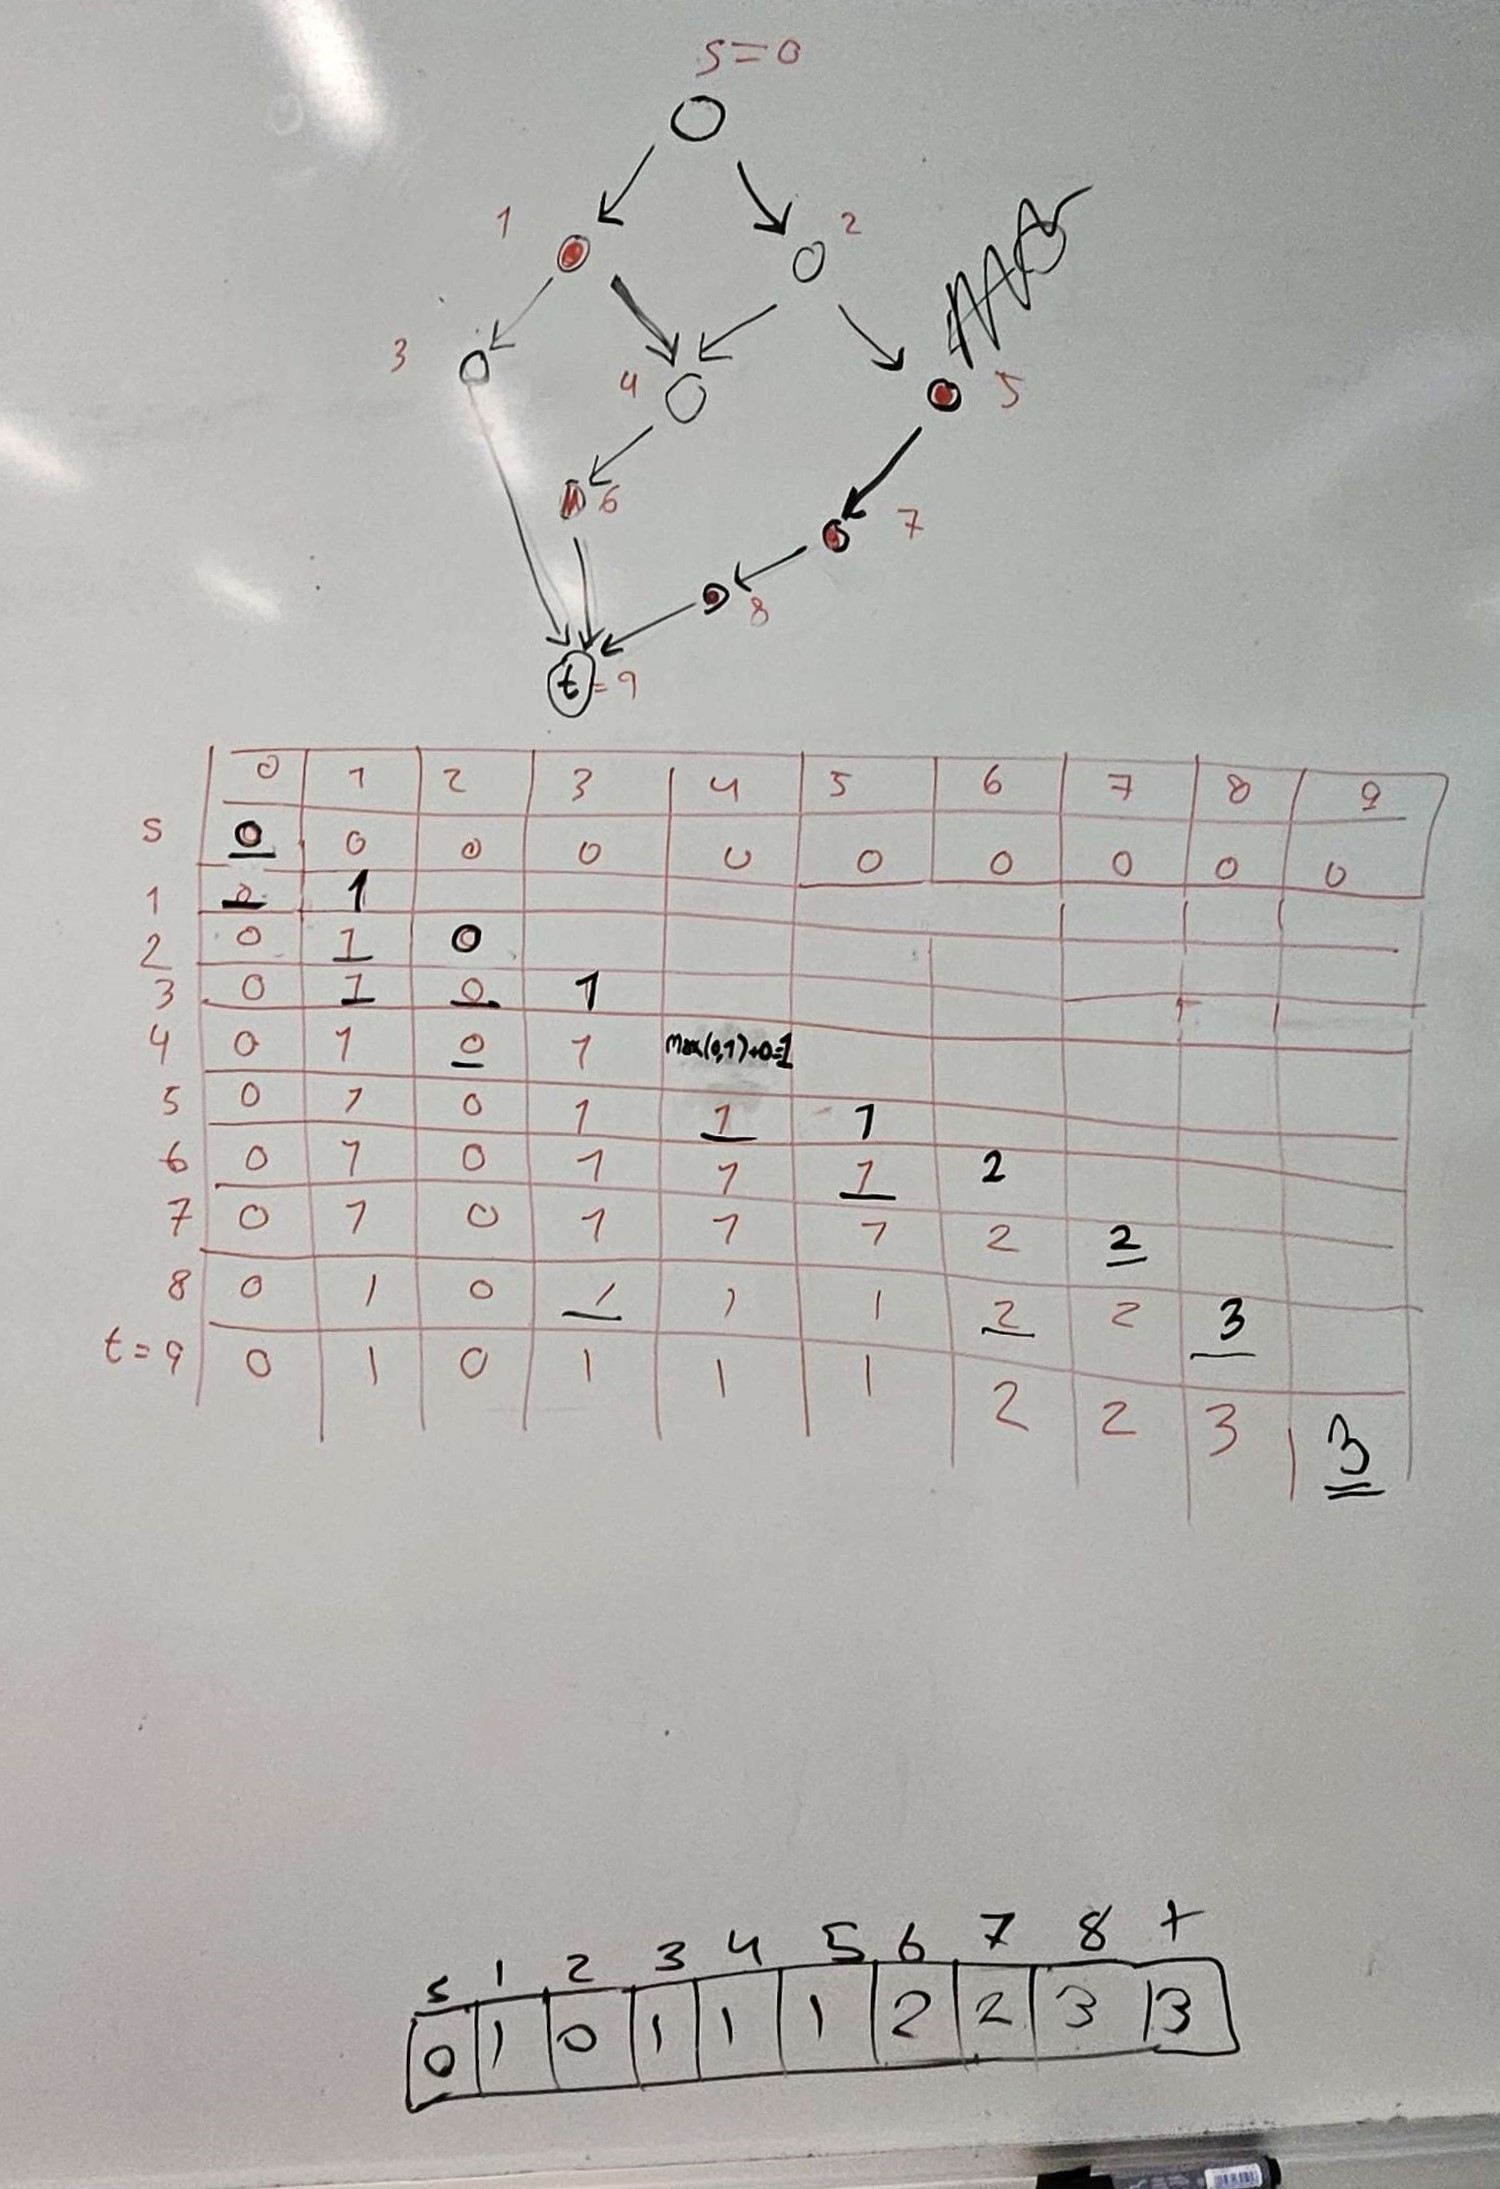 s=0
1 2
3 4 5
6 7
8
t = 9
0 1 2 3 4 5 6 7 8 9
s 0 0 0 0 0 0 0 0 0 0
1 0 1
2 0 1 0
3 0 1 0 1
4 0 1 0 1 max(0,1)+0=1
5 0 1 0 1 1 1
6 0 1 0 1 1 1 2
7 0 1 0 1 1 1 2 2
8 0 1 0 1 1 1 2 2 3
t=9 0 1 0 1 1 1 2 2 3 3
s 1 2 3 4 5 6 7 8 t
0 1 0 1 1 1 2 2 3 3